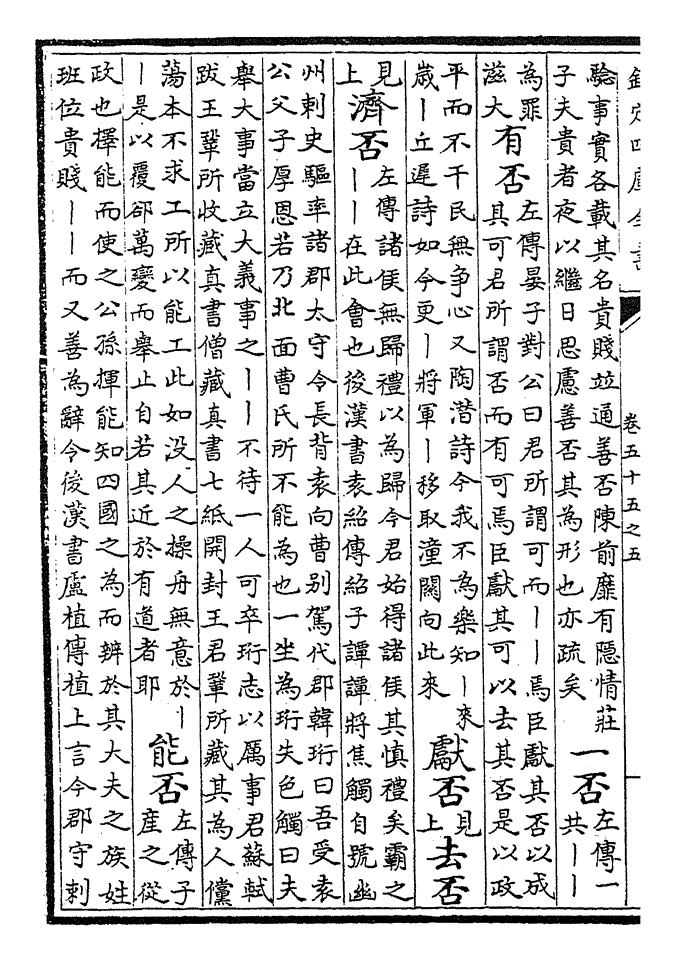 欽定四庫全書 卷五十五之五
驗事實各載其名貴賤竝通善否陳前靡有隱情莊
子夫貴者夜以繼日思慮善否其為形也亦疏矣
一否 左傳一
共丨丨
為罪
滋大
有否 左傳晏子對公曰君所謂可而丨丨焉臣獻其否以成
其可君所謂否而有可焉臣獻其可以去其否是以政
平而不干民無争心又陶潛詩今我不為樂知丨來
歲丨丘遲詩如今更丨將軍丨移取潼關向此來
獻否 見
上
去否
見
上
濟否 左傳諸侯無歸禮以為歸今君始得諸侯其慎禮矣霸之
丨丨在此會也後漢書袁紹傳紹子譚譚將焦觸自號幽
州刺史驅率諸郡太守令長背袁向曹别駕代郡韓珩曰吾受袁
公父子厚恩若乃北面曹氏所不能為也一坐為珩失色觸曰夫
舉大事當立大義事之丨丨不待一人可卒珩志以厲事君蘇軾
跋王鞏所收藏真書僧藏真書七紙開封王君鞏所藏其為人儻
蕩本不求工所以能工此如没人之操舟無意於丨
丨是以覆郤萬變而舉止自若其近於有道者耶
能否 左傳子
産之從
政也擇能而使之公孫揮能知四國之為而辨於其大夫之族姓
班位貴賤丨丨而又善為辭令後漢書盧植傳植上言今郡守刺